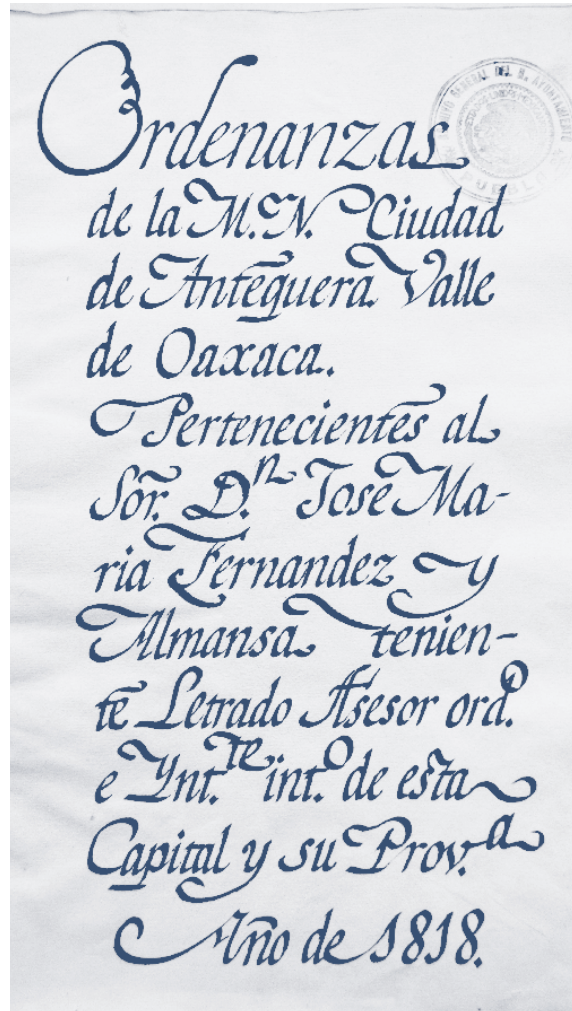 Ordenanzas
de la M.N. Ciudad
de Antequera Valle
de Oaxaca.
Pertenecientes al
Sōr. D.ⁿ Jose Ma-
ria Fernandez y
Almansa tenien-
te Letrado Asesor ord.º
e Ynt.te int.º de esta
Capital y su Prov.ª
Año de 1818.
GENERAL DEL H. AYUNTAMIENTO